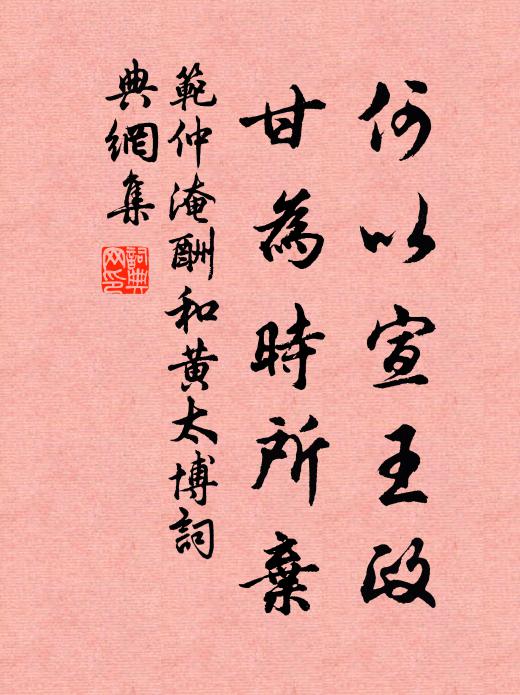 何以宣王政
甘為時所棄
範仲淹酬和黃太博詞
典網集
詞典
网印